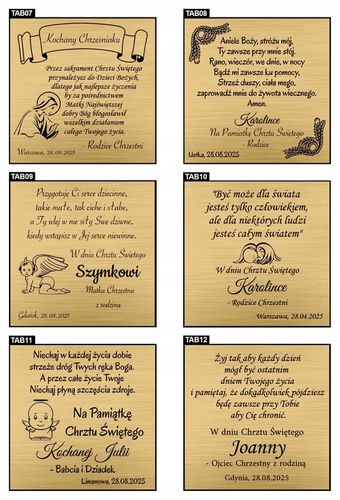 TAB07
Kochany Chrześniaku
Przez sakrament Chrztu Świętego
przynależysz do Dzieci Bożych,
dlatego jak najlepsze życzenia
by za pośrednictwem
Matki Najświętszej
dobry Bóg błogosławił
wszelkim działaniom
całego Twojego życia.
- Rodzice Chrzestni
Warszawa, 28.08.2025
TAB08
Aniele Boży, stróżu mój,
Ty zawsze przy mnie stój.
Rano, wieczór, we dnie, w nocy
Bądź mi zawsze ku pomocy,
Strzeż duszy, ciała mego,
zaprowadź mnie do żywota wiecznego.
Amen.
Karolince
Na Pamiątkę Chrztu Świętego
- Rodzice
Ustka, 28.08.2025
TAB09
Przygotuję Ci serce dziecinne,
takie małe, tak ciche i słabe,
a Ty wlej w nie siły Swe dziwne,
kiedy wstąpisz w Jej serce niewinne.
W dniu Chrztu Świętego
Szymkowi
Matka Chrzestna
z rodziną
Gdańsk, 28.08.2025
TAB10
"Być może dla świata
jesteś tylko człowiekiem,
ale dla niektórych ludzi
jesteś całym światem"
W dniu Chrztu Świętego
Karolince
- Rodzice Chrzestni
Warszawa, 28.04.2025
TAB11
Niechaj w każdej życia dobie
strzeże dróg Twych ręka Boga.
A przez całe życie Twoje
Niechaj płyną szczęścia zdroje.
Na Pamiątkę
Chrztu Świętego
Kochanej Julii
- Babcia i Dziadek
Limanowa, 28.08.2025
TAB12
Żyj tak aby każdy dzień
mógł być ostatnim
dniem Twojego życia
i pamiętaj, że dokądkolwiek pójdziesz
będę zawsze przy Tobie
aby Cię chronić.
W dniu Chrztu Świętego
Joanny
- Ojciec Chrzestny z rodziną
Gdynia, 28.08.2025